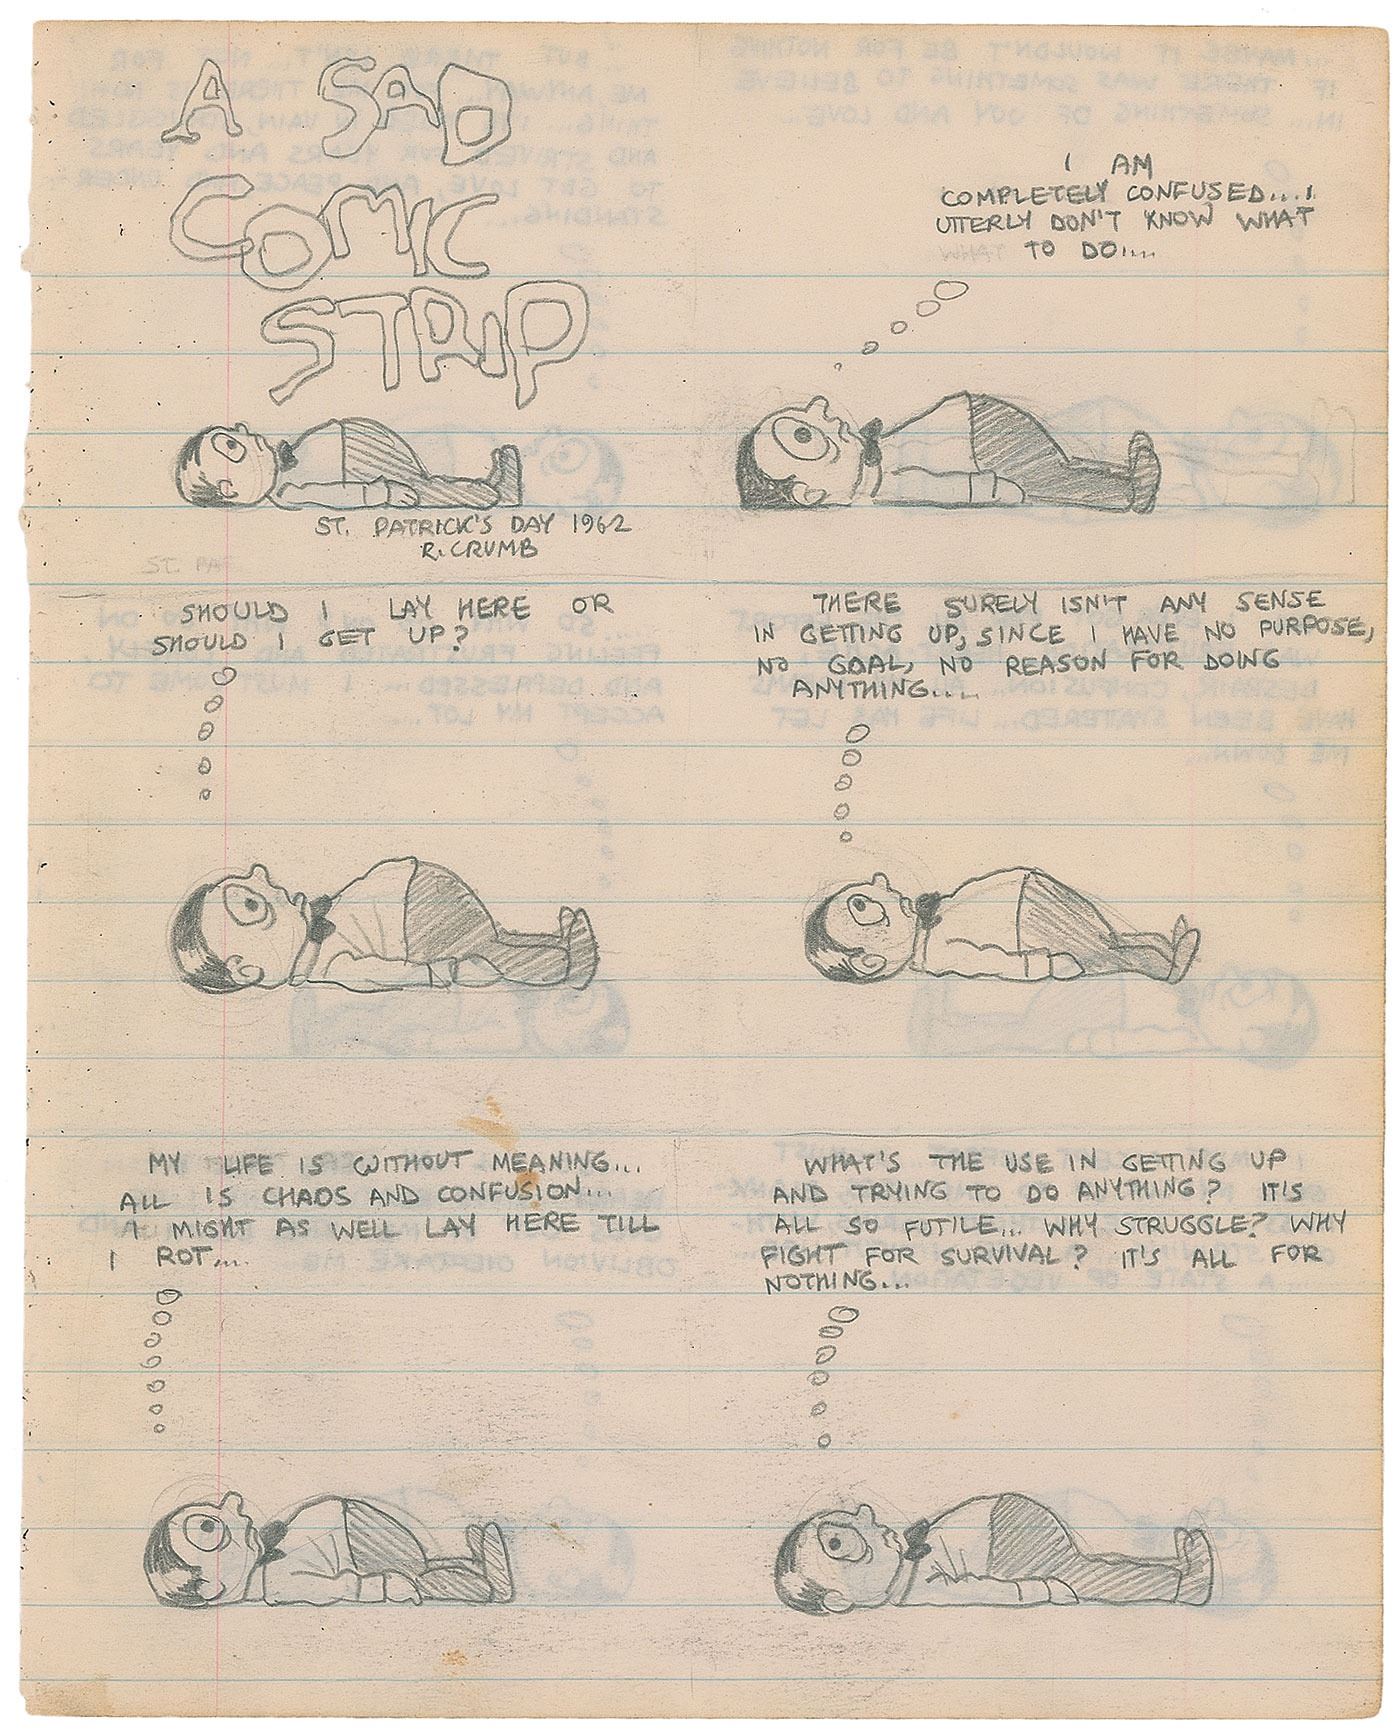 A SAD
COMIC
STRIP
ST. PATRICK'S DAY 1962
R. CRUMB
I AM
COMPLETELY CONFUSED.... I
UTTERLY DON'T KNOW WHAT
TO DO....
SHOULD I LAY HERE OR
SHOULD I GET UP?
THERE SURELY ISN'T ANY SENSE
IN GETTING UP, SINCE I HAVE NO PURPOSE,
NO GOAL, NO REASON FOR DOING
ANYTHING....
MY LIFE IS WITHOUT MEANING...
ALL IS CHAOS AND CONFUSION...
I MIGHT AS WELL LAY HERE TILL
I ROT....
WHAT'S THE USE IN GETTING UP
AND TRYING TO DO ANYTHING? IT'S
ALL SO FUTILE... WHY STRUGGLE? WHY
FIGHT FOR SURVIVAL? IT'S ALL FOR
NOTHING...